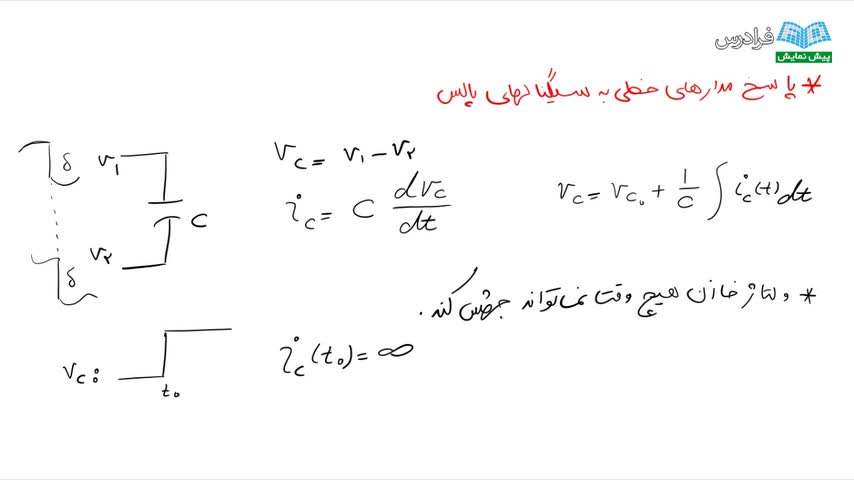 فرادرس
پیش نمایش
* پاسخ مدارهای خطی به سیگنالهای پالس
δ V۱
C
δ V۲
Vc = V۱ - V۲
ic = C dVc/dt
Vc = Vc₀ + 1/C ∫ ic(t) dt
* ولتاژ خازن هیچ وقت نمی‌تواند جهش کند.
Vc:
t₀
ic(t₀) = ∞